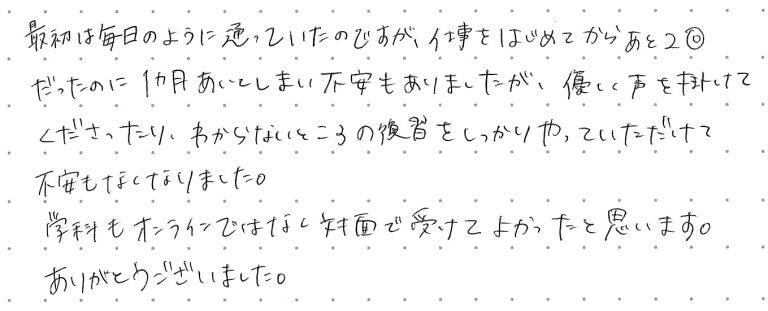 最初は毎日のように通っていたのですが、仕事をはじめてからあと2回
だったのに1カ月あいてしまい不安もありましたが、優しく声を掛けて
くださったり、わからないところの復習をしっかりやっていただけて
不安もなくなりました。
学科もオンラインではなく対面で受けてよかったと思います。
ありがとうございました。